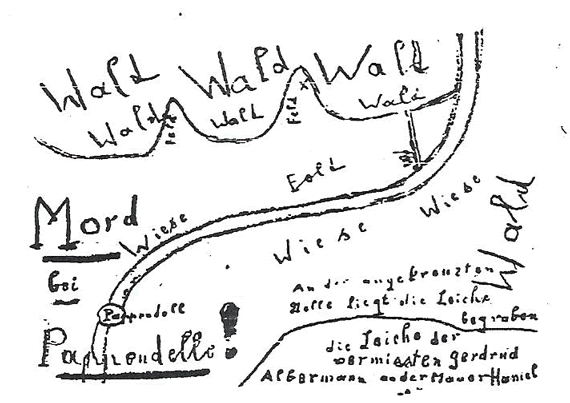 Wald Wald Wald
Wald
Feld
Wald
Feld
x
Wald
Feld
Mord
bei
Pappendelle!
Wiese
Wiese
Wiese
Wald
Pappendell
An der angekreuzten
Stelle liegt die Leiche
begraben
die Leiche der
vermissten gerdrud
Albermann an der Mauer Haniel